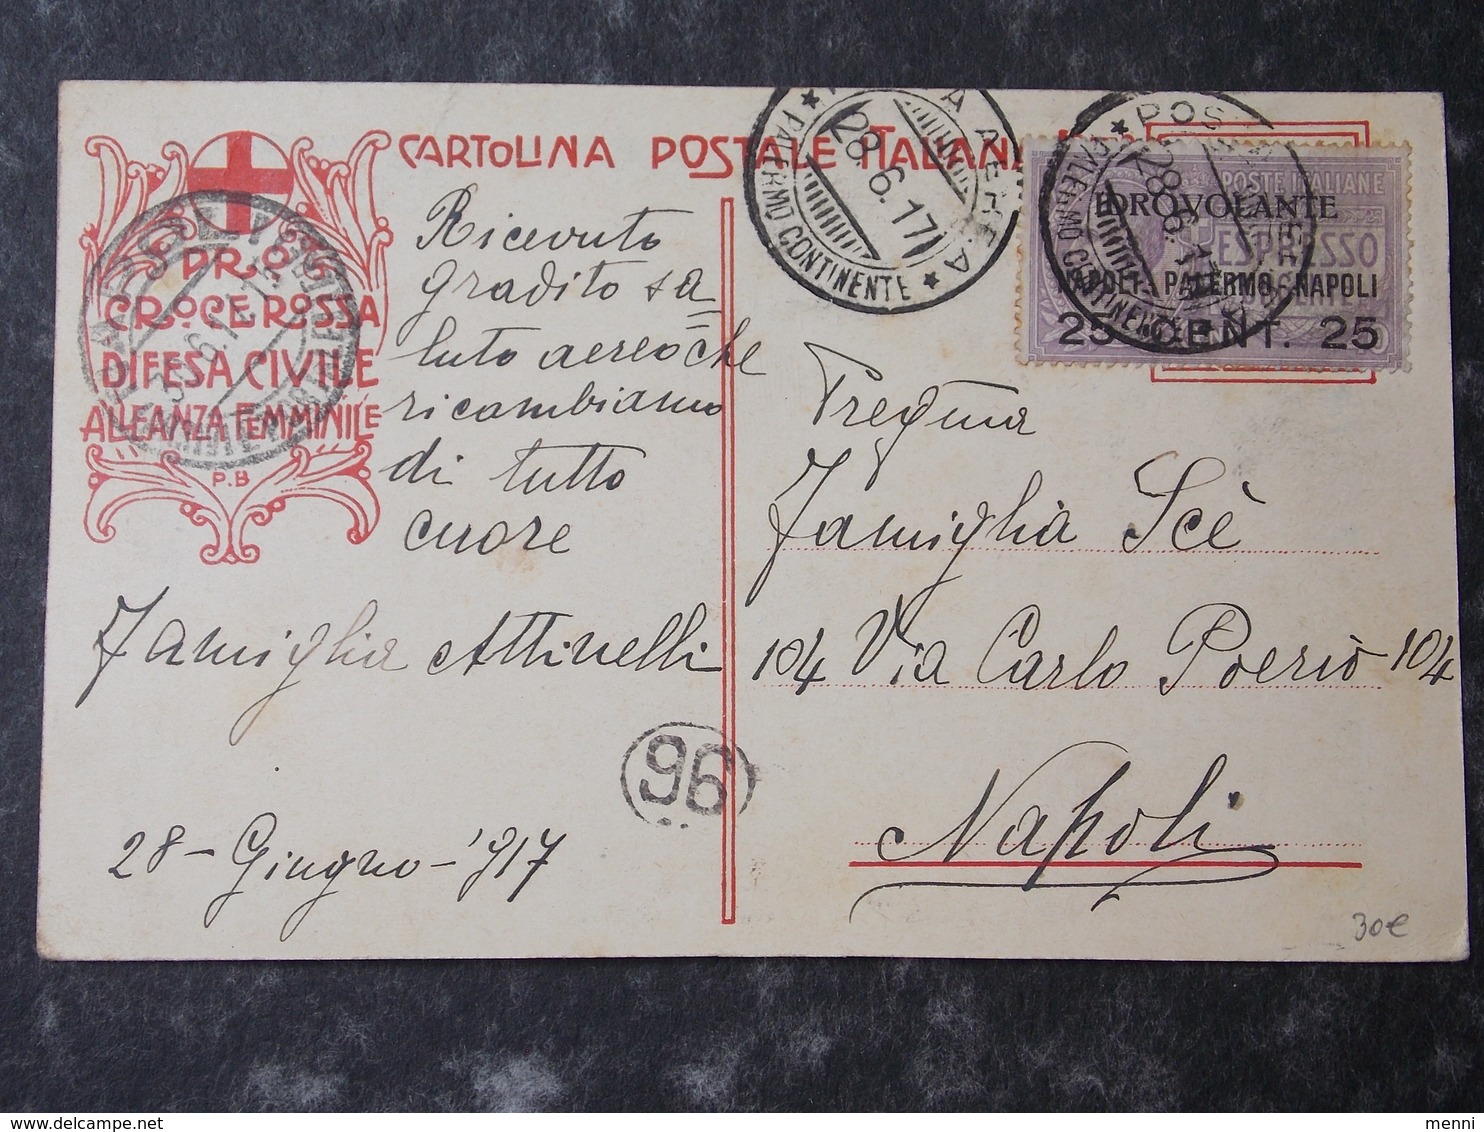 CARTOLINA POSTALE ITALIANA
PRO
CROCE ROSSA
DIFESA CIVILE
ALLEANZA FEMMINILE
P.B
Ricevuto
gradito sa
luto aereo che
ricambiamo
di tutto
cuore
Famiglia Attinelli
28 - Giugno - '917
96
POSTA AEREA
PALERMO CONTINENTE
28.6.17
POSTA AEREA
PALERMO CONTINENTE
28.6.17
POSTE ITALIANE
IDROVOLANTE
ESPRESSO
NAPOLI - PALERMO - NAPOLI
25 CENT. 25
Pregma
Famiglia Scè
104 Via Carlo Poerio 104
Napoli
30€
delcampe.net
menni